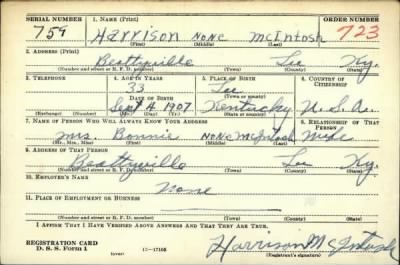 SERIAL NUMBER 1. NAME (Print) ORDER NUMBER
759 Harrison none McIntosh 723
(First) (Middle) (Last)
2. ADDRESS (Print)
Beattyville Lee Ky.
(Number and street or R. F. D. number) (Town) (County) (State)
3. TELEPHONE 4. AGE IN YEARS 5. PLACE OF BIRTH 6. COUNTRY OF CITIZENSHIP
33 Lee
DATE OF BIRTH (Town or county)
Sept 4, 1907 Kentucky U.S.A.
(Exchange) (Number) (Mo.) (Day) (Yr.) (State or country)
7. NAME OF PERSON WHO WILL ALWAYS KNOW YOUR ADDRESS 8. RELATIONSHIP OF THAT PERSON
Mrs. Bonnie none McIntosh Wife
(Mr., Mrs., Miss) (First) (Middle) (Last)
9. ADDRESS OF THAT PERSON
Beattyville Lee Ky.
(Number and street or R. F. D. number) (Town) (County) (State)
10. EMPLOYER'S NAME
None
11. PLACE OF EMPLOYMENT OR BUSINESS
(Number and street or R. F. D. number) (Town) (County) (State)
I AFFIRM THAT I HAVE VERIFIED ABOVE ANSWERS AND THAT THEY ARE TRUE.
REGISTRATION CARD
D. S. S. Form 1 (over) 16—17105 Harrison McIntosh
(Registrant's signature)